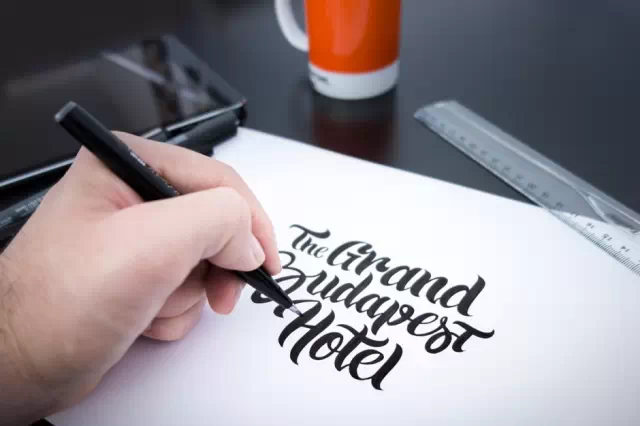 The Grand
Budapest
Hotel